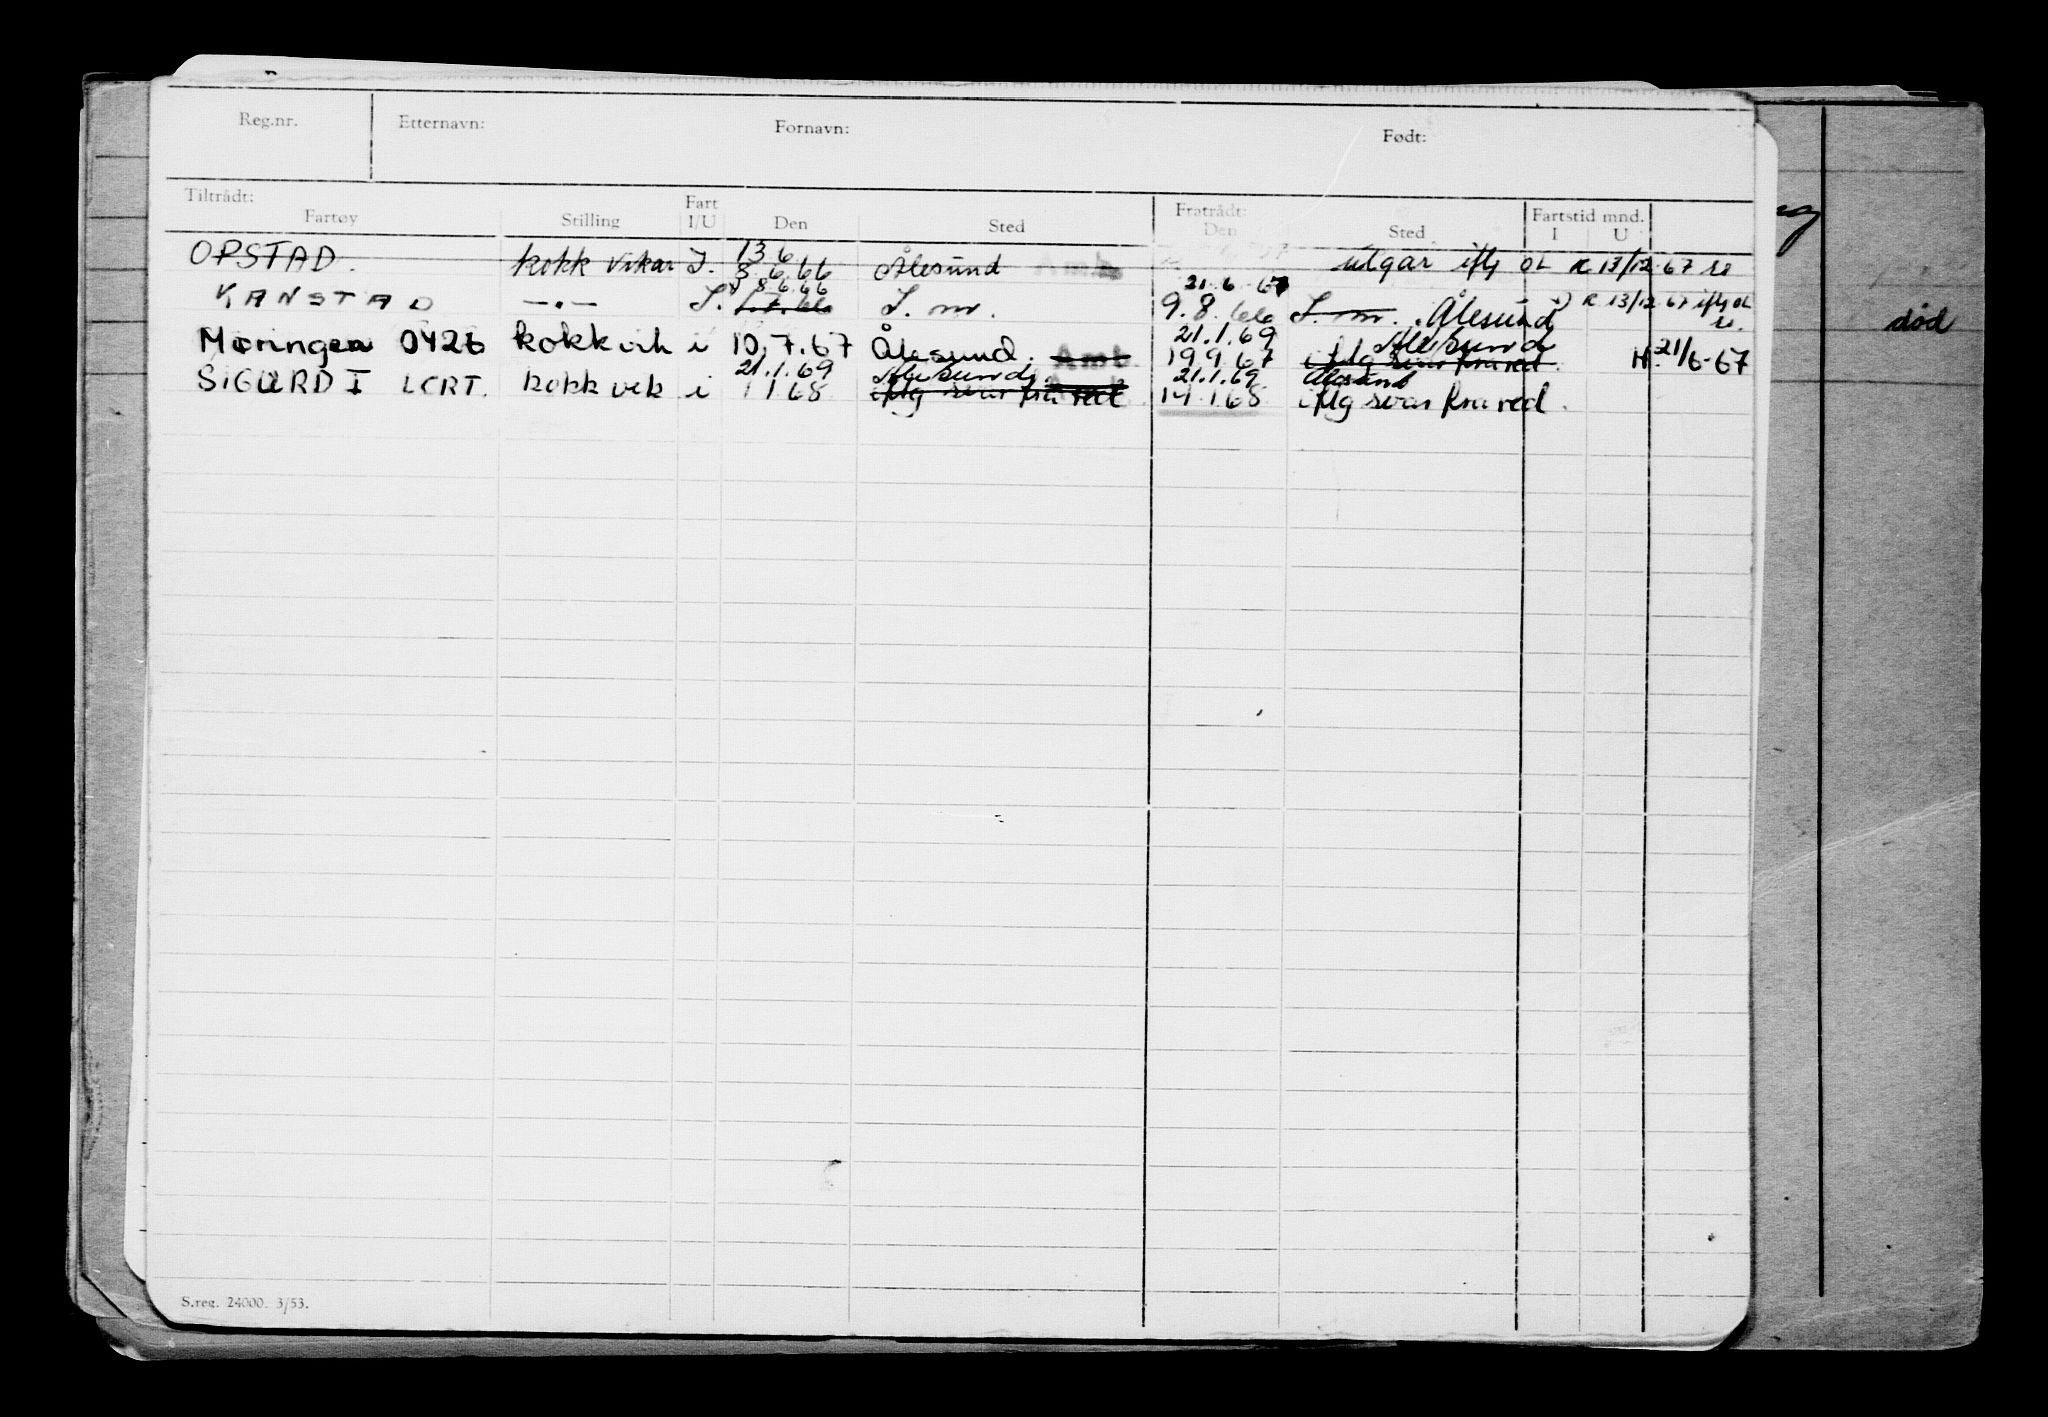 Reg.nr. Etternavn: Fornavn: Født:
Tiltrådt: Fratrådt:
Fartøy Stilling Fart I/U Den Sted Den Sted Fartstid mnd. I U
13 6
OPSTAD. kokk vikar I. 8.6.66 Ålesund Amb. utgår iflg OL R 13/12-67
8.6.66 21.6.67
KANSTAD —"— I. I. m. 9.8.66 I. m. Ålesund R 13/12 67 iflg OL
21.1.69 Ålesund
Møringen 0426 kokk vik i 10.7.67 Ålesund. Amb. 19.9.67 iflg svar fra red. H. 21/6-67
21.1.69 Ålesund 21.1.69 Ålesund
SIGURD I LCRT. kokk vik i 1 1 68 iflg svar fra red 14.1.68 iflg svar fra red.
død
S.reg. 24000. 3/53.